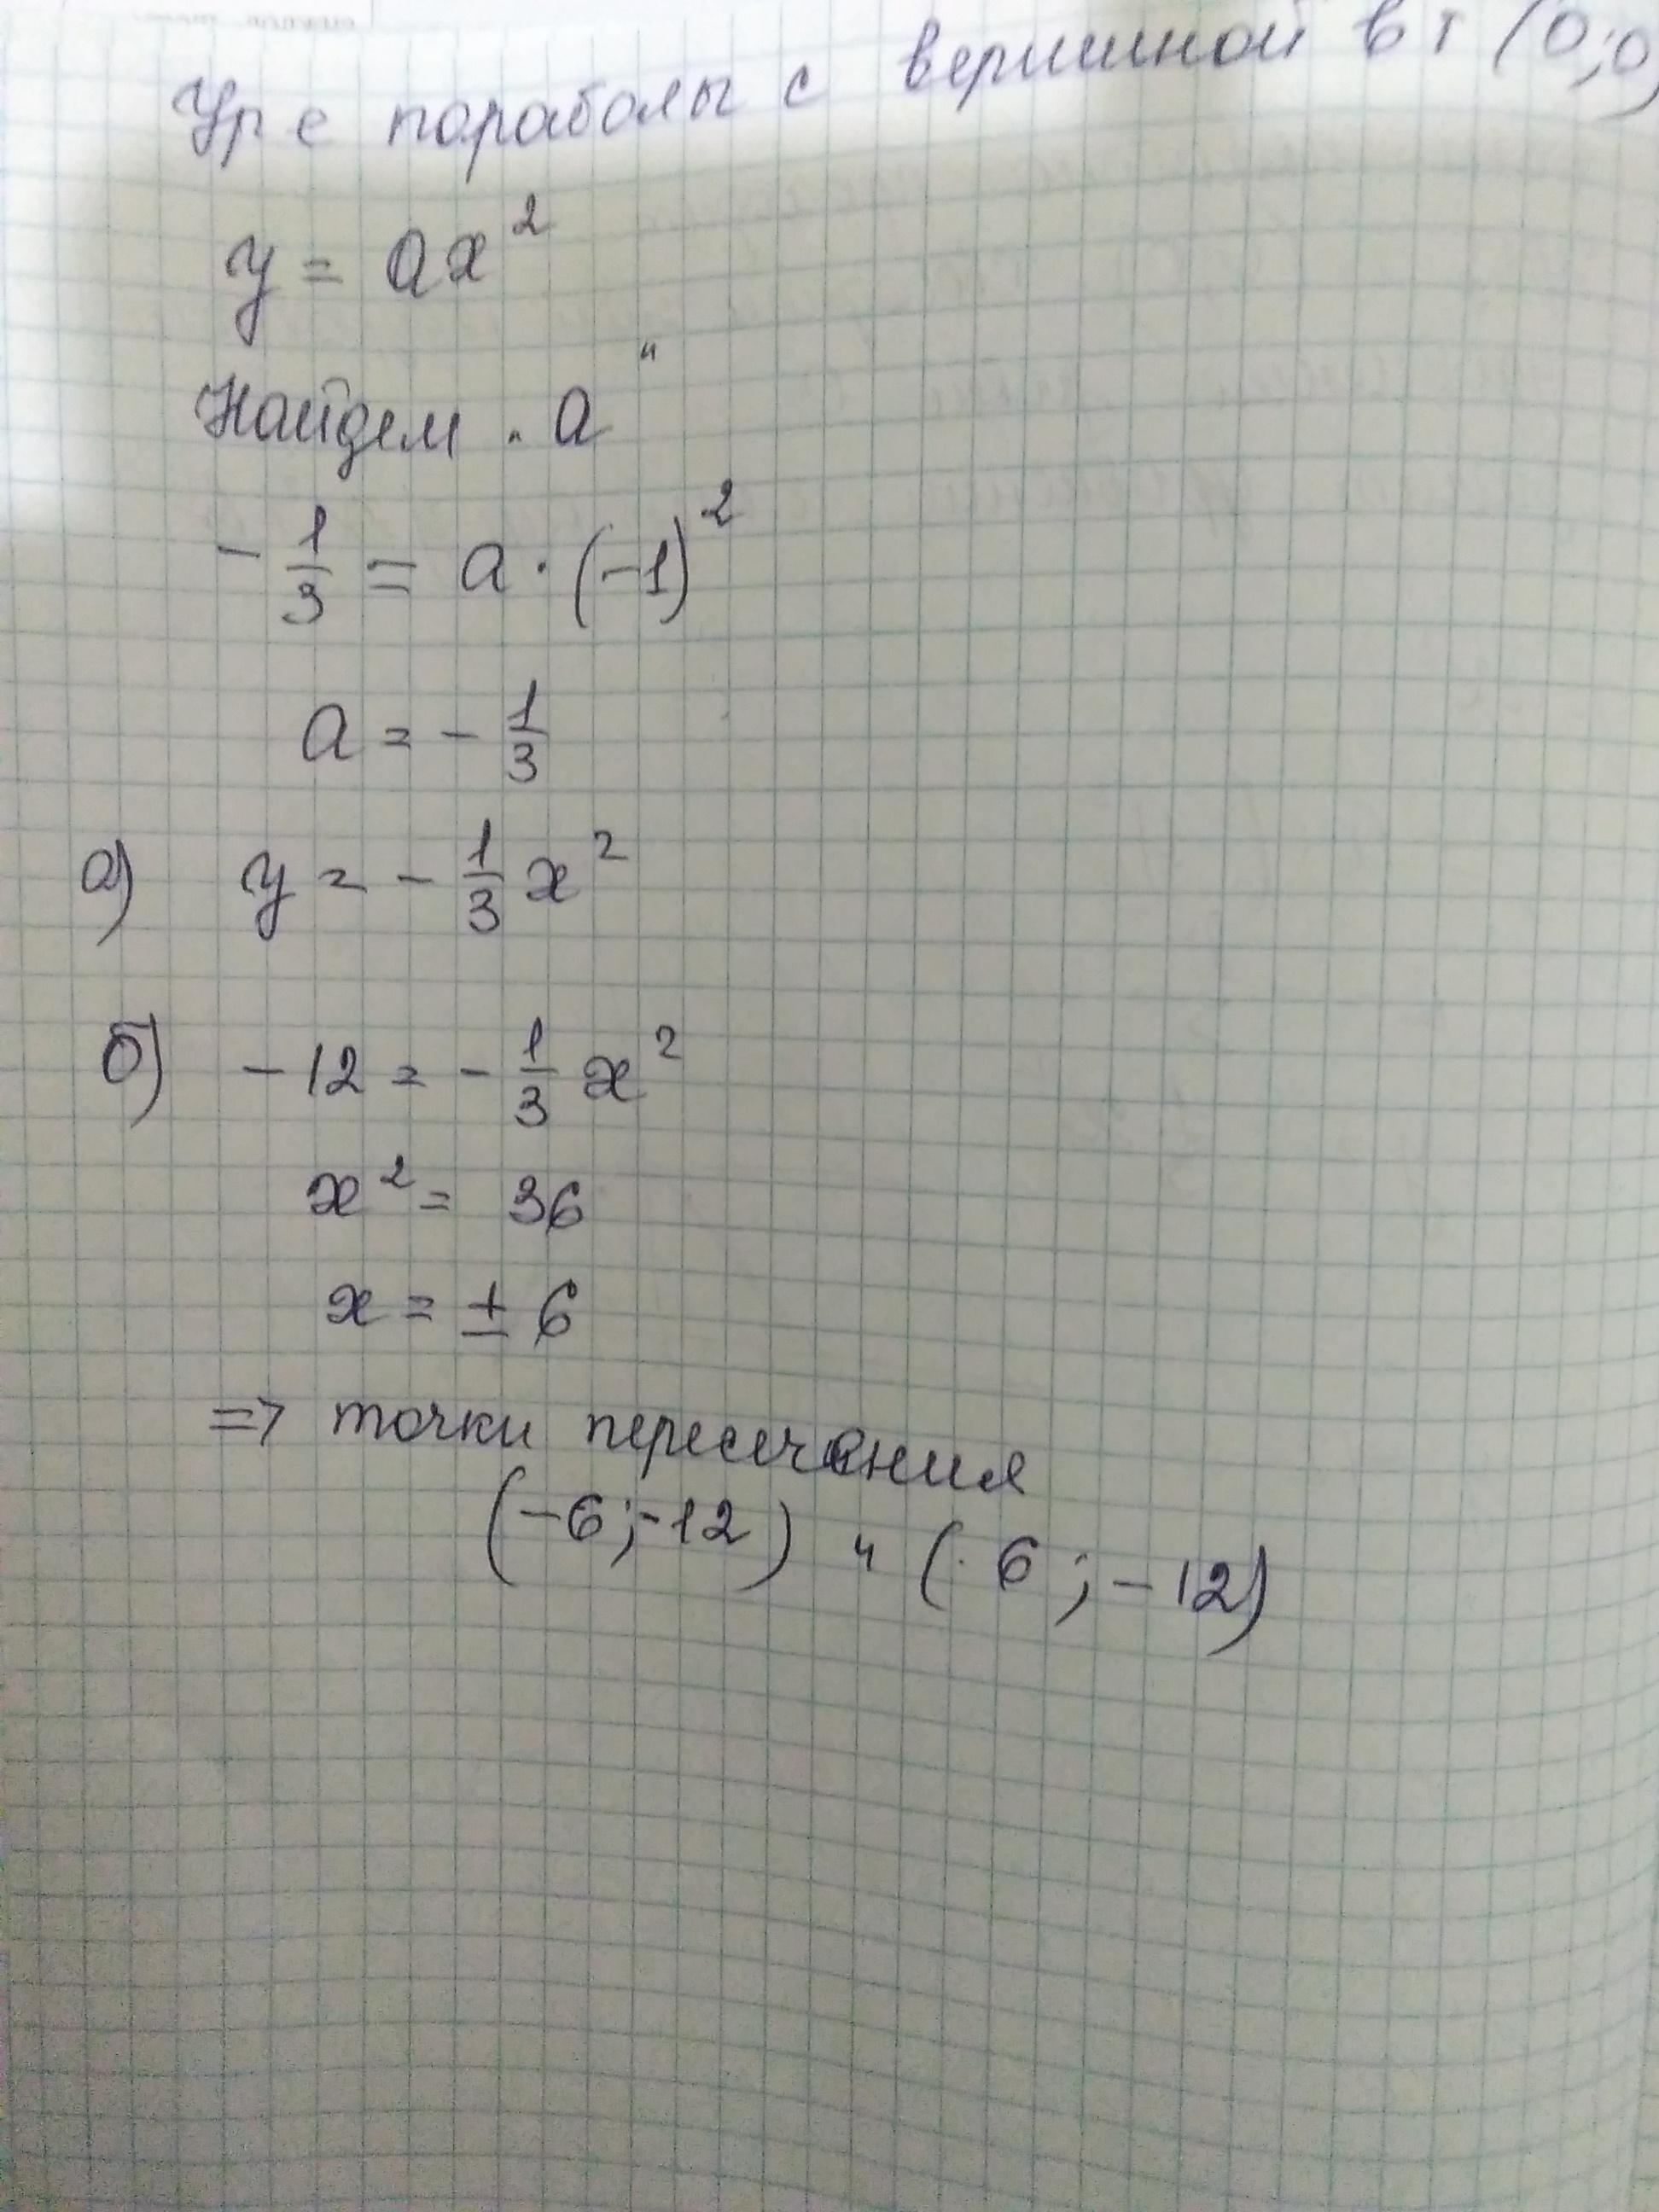 Ур е параболы с вершиной в т (0;0)
y = ax²
Найдем „a"
- 1/3 = a · (-1)²
a = - 1/3
а) y = - 1/3 x²
б) -12 = - 1/3 x²
x² = 36
x = ± 6
=> точки пересечения
(-6; -12) и (6; -12)